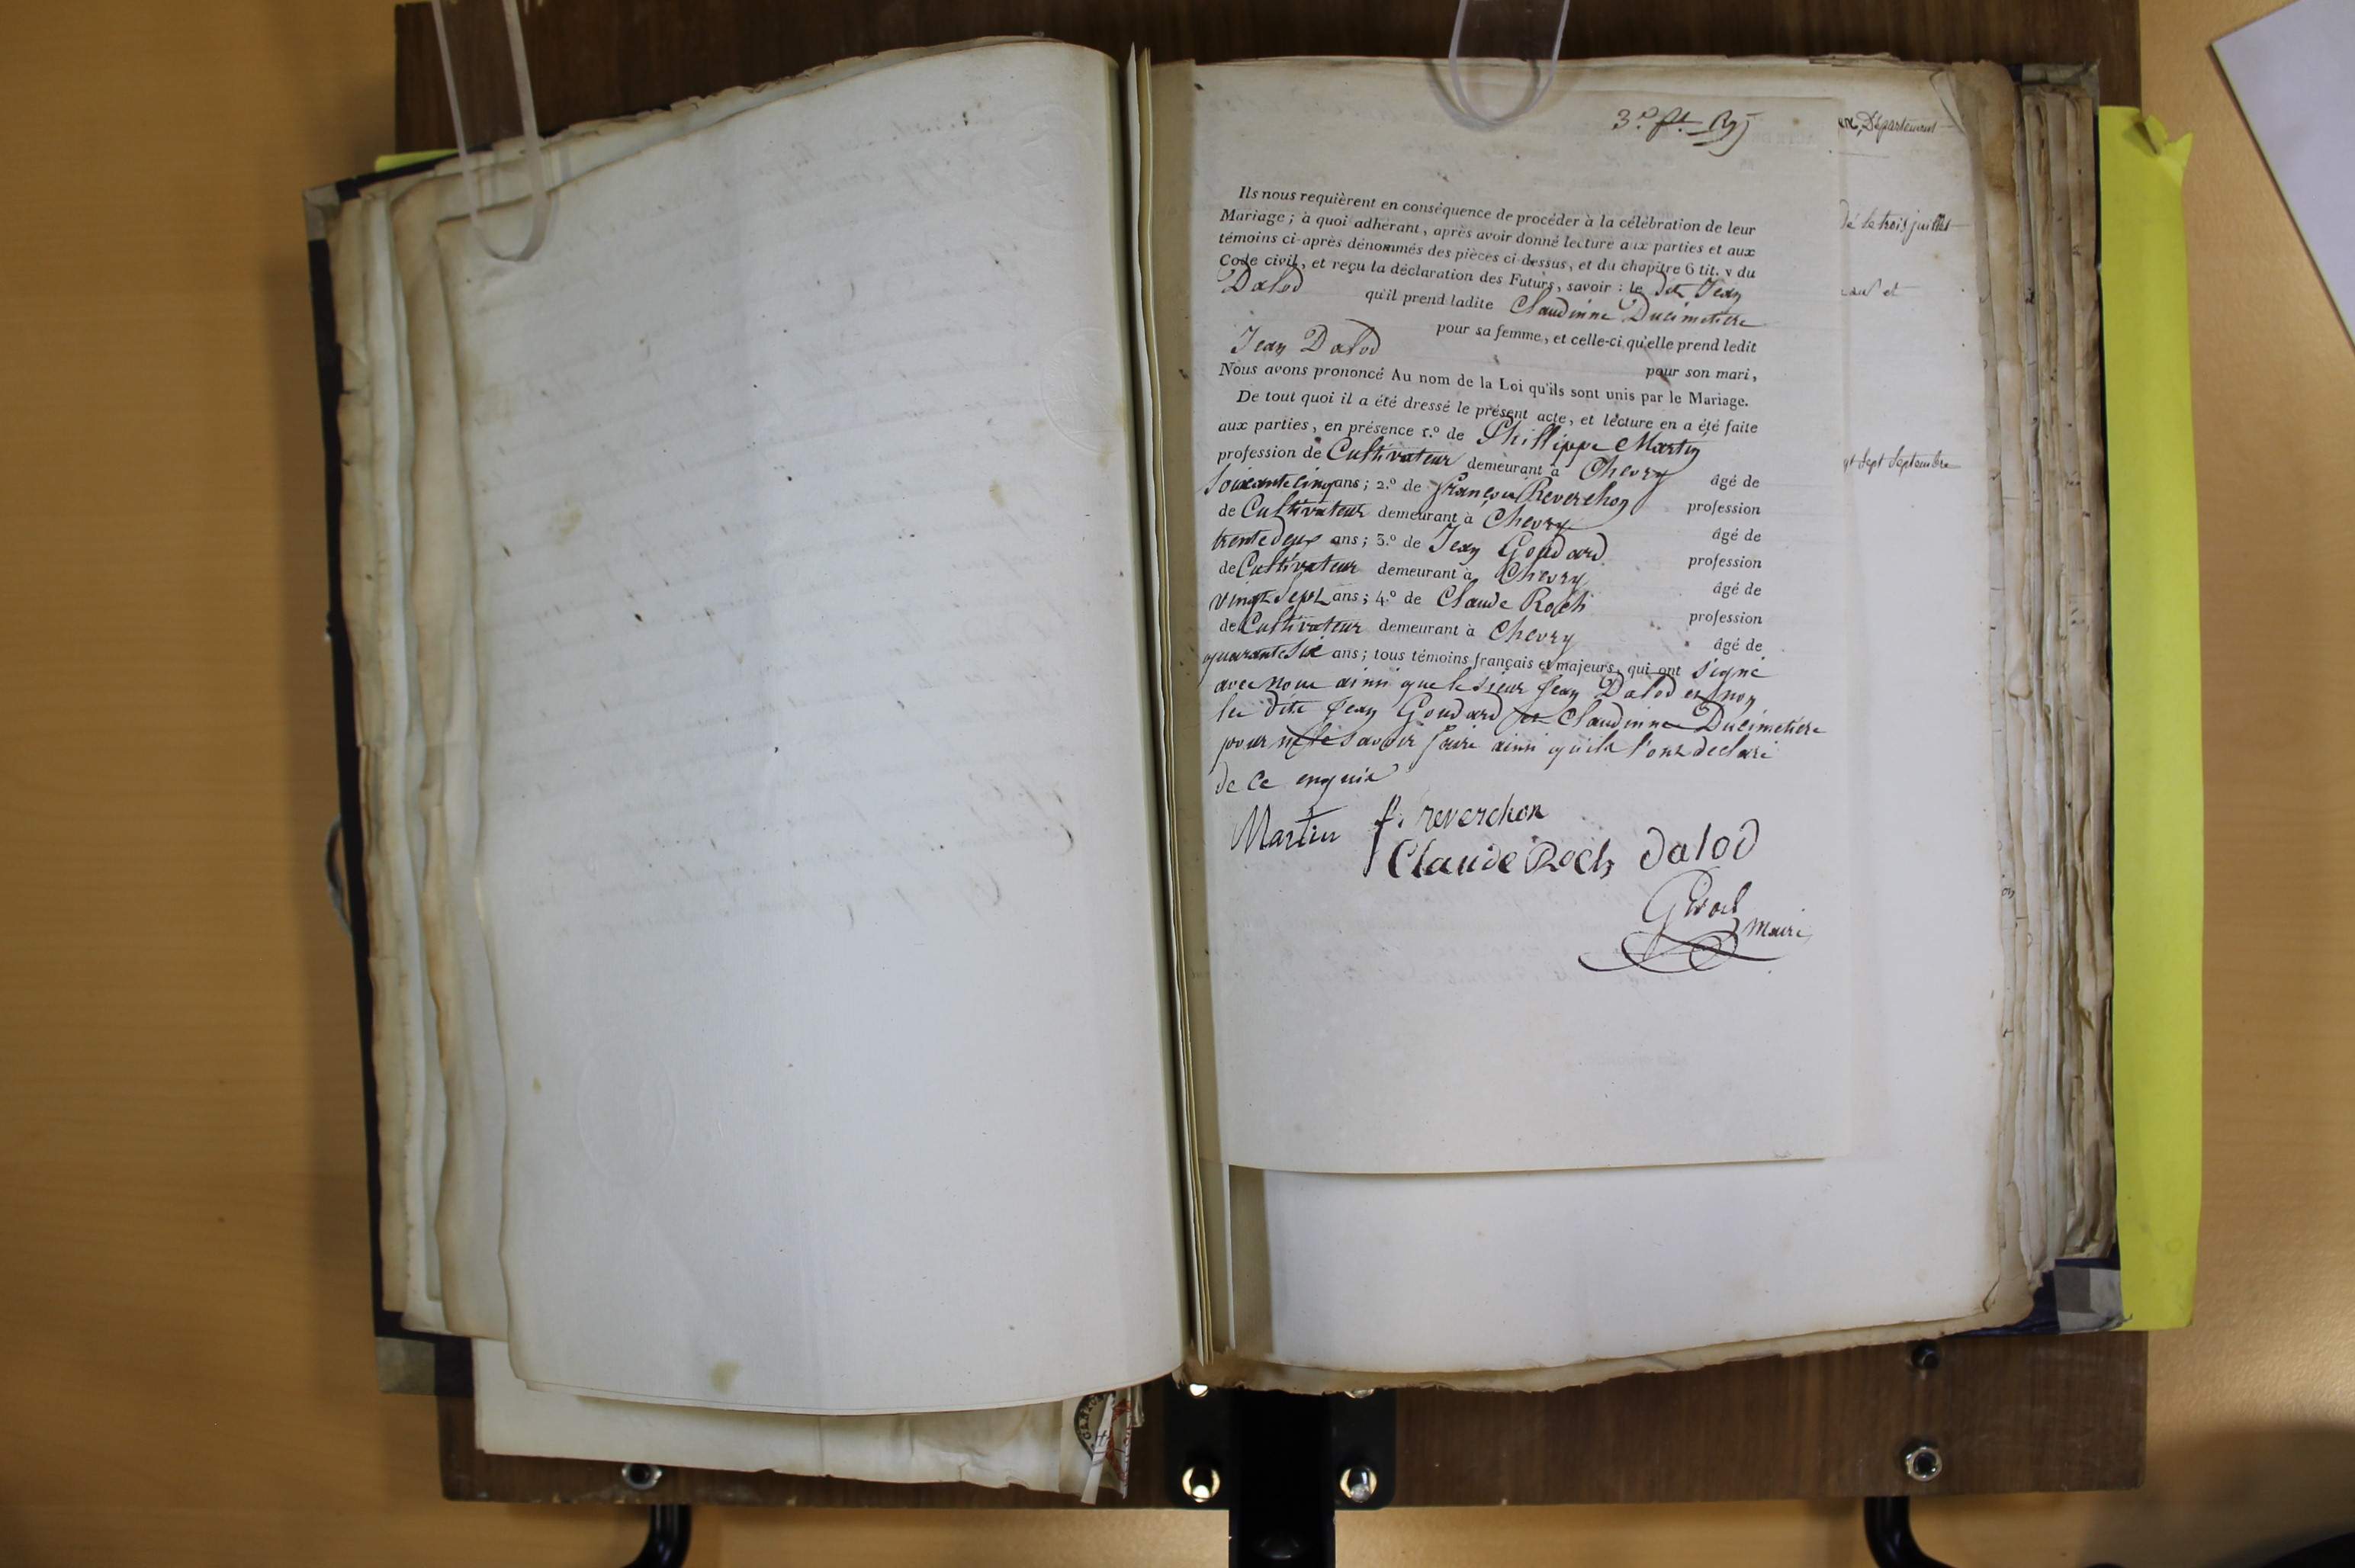 3.e ft. Rg
Ils nous requièrent en conséquence de procéder à la célébration de leur
Mariage; à quoi adhérant, après avoir donné lecture aux parties et aux
témoins ci-après dénommés des pièces ci-dessus, et du chapitre 6 tit. v du
Code civil, et reçu la déclaration des Futurs, savoir : le dit Jean
Dalod qu'il prend ladite Claudinne Ducimetiere
pour sa femme, et celle-ci qu'elle prend ledit
Jean Dalod pour son mari,
Nous avons prononcé Au nom de la Loi qu'ils sont unis par le Mariage.
De tout quoi il a été dressé le présent acte, et lecture en a été faite
aux parties, en présence 1.º de Phillippe Martin
profession de Cultivateur demeurant à Chevry âgé de
soixante cinq ans; 2.º de françois Reverchon profession
de Cultivateur demeurant à Chevry âgé de
trente deux ans; 3.º de Jean Goudard profession
de Cultivateur demeurant à Chevry âgé de
vingt sept ans; 4.º de Claude Roch profession
de Cultivateur demeurant à Chevry âgé de
quarante six ans; tous témoins français et majeurs, qui ont signé
avec nous ainsi que le sieur Jean Dalod et non
les dits Jean Goudard et Claudinne Ducimetiere
pour ne le savoir faire ainsi qu'ils l'ont declaré
de ce enquis
Martin f. reverchon
Claude Roch dalod
Girod
Maire
Département
dé le trois juillet
et
gt sept septembre